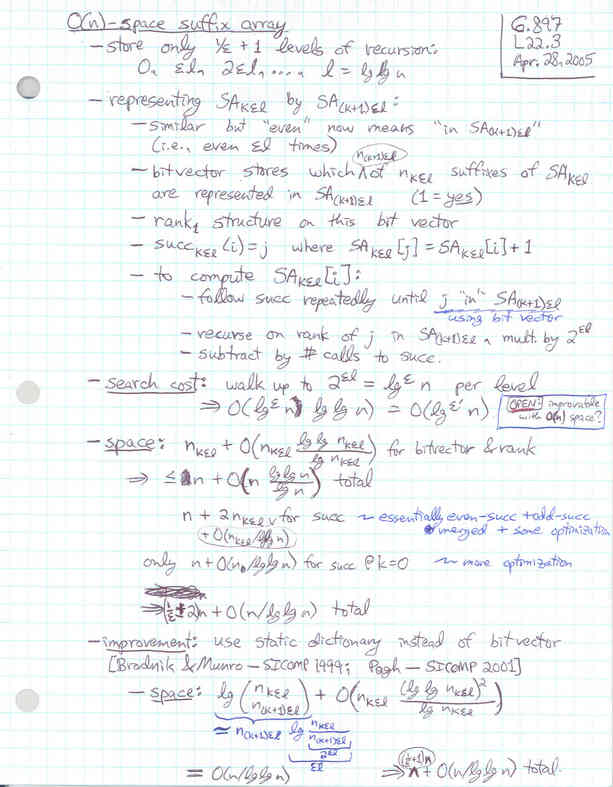 O(n)-space suffix array
6.897
L22.3
Apr. 28, 2005
- store only 1/ε + 1 levels of recursion:
0, εl, 2εl, ..., l = lg lg n
- representing SA_kεl by SA_(k+1)εl:
- similar but "even" now means "in SA_(k+1)εl"
(i.e., even εl times)
- bitvector stores which n_(k+1)εl of n_kεl suffixes of SA_kεl
are represented in SA_(k+1)εl (1 = yes)
- rank₁ structure on this bit vector
- succ_kεl(i) = j where SA_kεl[j] = SA_kεl[i] + 1
- to compute SA_kεl[i]:
- follow succ repeatedly until j "in" SA_(k+1)εl
using bit vector
- recurse on rank of j in SA_(k+1)εl, mult by 2^εl
- subtract by # calls to succ.
- search cost: walk up to 2^εl = lg^ε n per level
⇒ O(lg^ε n lg lg n) = O(lg^ε' n)
OPEN: improvable
with O(n) space?
- space: n_kεl + O(n_kεl lg lg n_kεl / lg n_kεl) for bitvector & rank
⇒ ≤ n + O(n lg lg n / lg n) total
n + 2n_kεl + O(n_kεl/lg lg n) for succ ~ essentially even-succ + odd-succ
merged + some optimization
only n + O(n/lg lg n) for succ @ k=0 ~ more optimization
⇒ (1/ε + 2)n + O(n/lg lg n) total
- improvement: use static dictionary instead of bitvector
[Brodnik & Munro - SICOMP 1999; Pagh - SICOMP 2001]
- space: lg (n_kεl n_(k+1)εl) + O(n_kεl (lg lg n_kεl)² / lg n_kεl)
≈ n_(k+1)εl lg n_kεl / n_(k+1)εl
2^εl
εl
= O(n/lg lg n) ⇒ (1/ε+1)n + O(n/lg lg n) total.